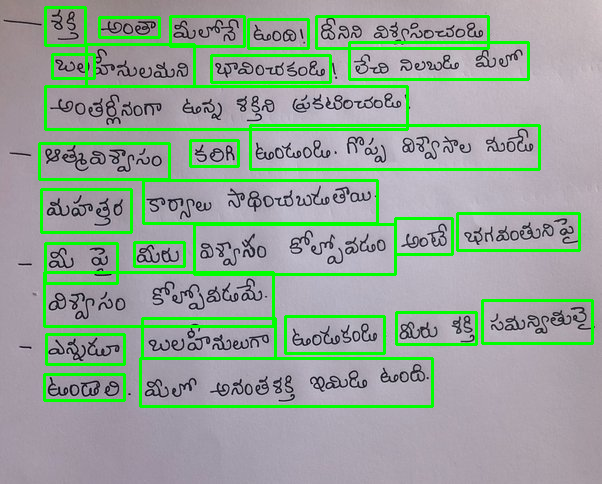 — శక్తి అంతా మీలోనే ఉంది! దీనిని విశ్వసించండి
బలహీనులమని భావించకండి! లేచి నిలబడి మీలో
అంతర్లీనంగా ఉన్న శక్తిని ప్రకటించండి!
— ఆత్మవిశ్వాసం కలిగి ఉండండి. గొప్ప విశ్వాసాల నుండే
మహత్తర కార్యాలు సాధించబడుతాయి.
- మీ పై మీరు విశ్వాసం కోల్పోవడం అంటే భగవంతునిపై
విశ్వాసం కోల్పోవడమే.
- ఎన్నడూ బలహీనులుగా ఉండకండి. మీరు శక్తి సమన్వితులై
ఉండాలి. మీలో అనంతశక్తి ఇమిడి ఉంది.